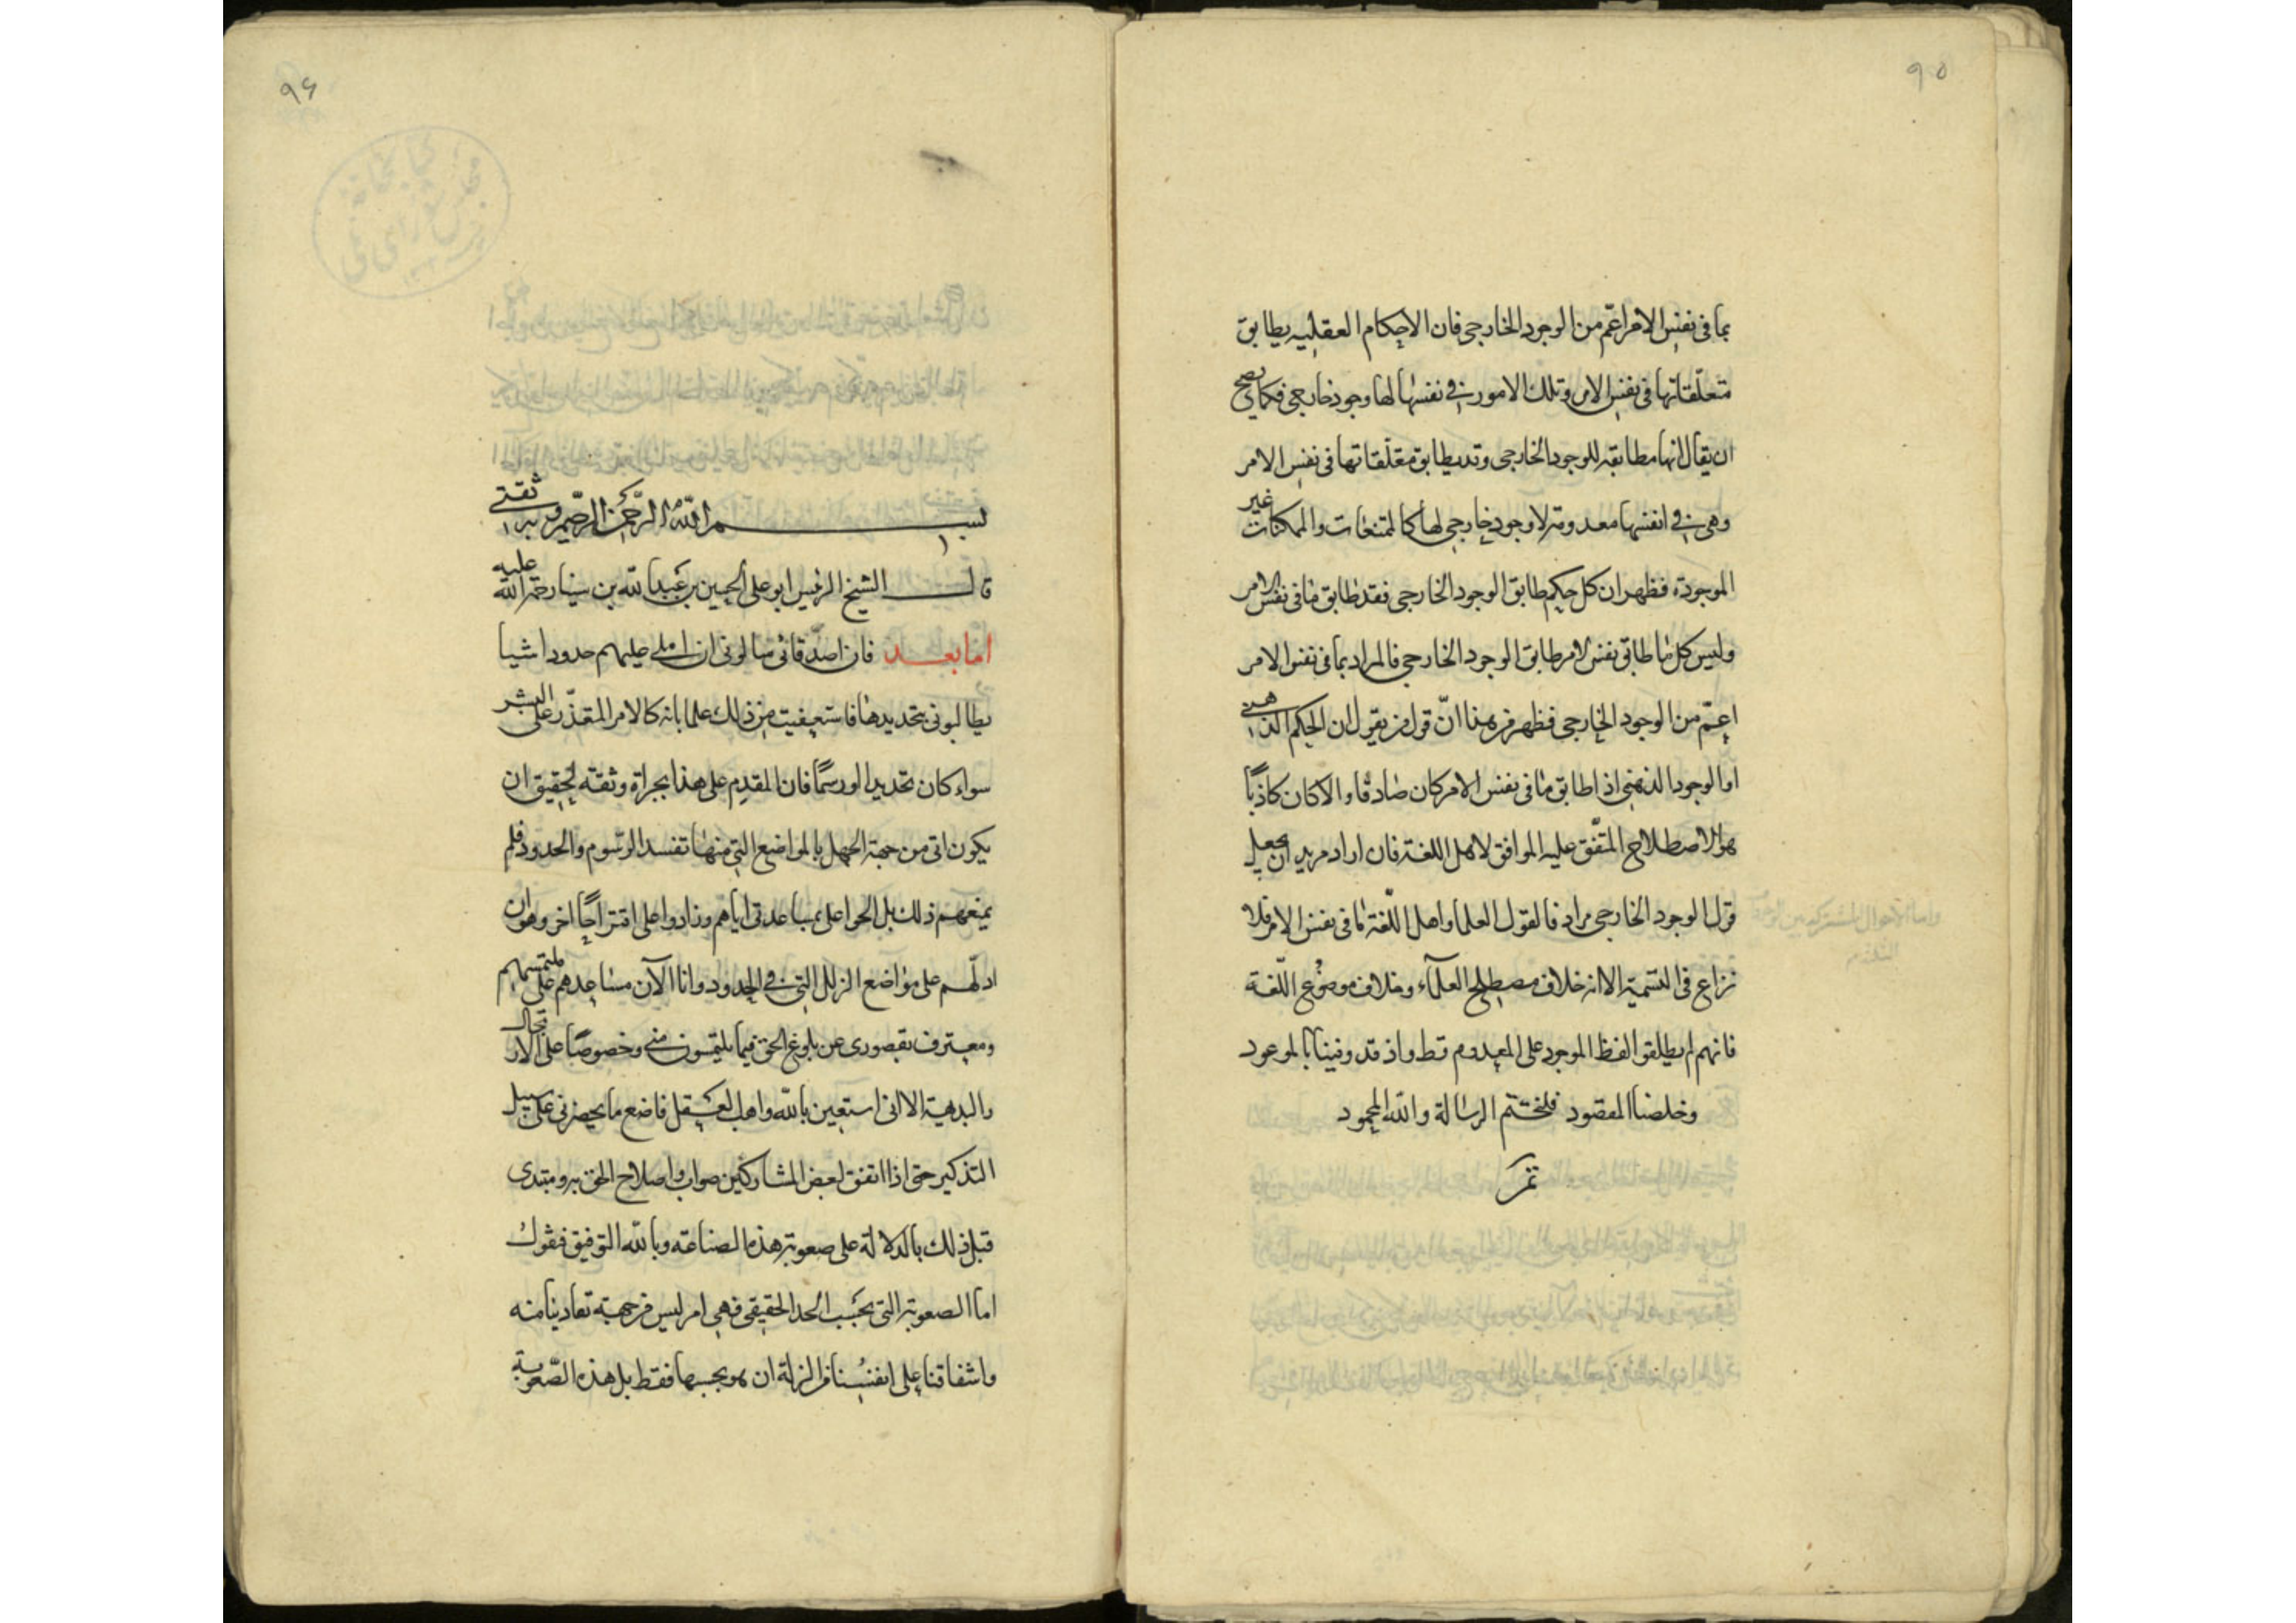 ٩٥
بما فى نفس الامر اعمّ من الوجود الخارجى فان الاحكام العقليه يطابق
متعلّقاتها فى نفس الامر وتلك الامور فى نفسها لها وجود خارجى فكما يصح
ان يقال انها مطابقه للوجود الخارجى وقد يطابق متعلّقاتها فى نفس الامر
وهى فى انفسها معدومة لا وجود خارجى لها كالممتنعات والممكنات غير
الموجودة فظهر ان كل حكم طابق الوجود الخارجى فقد طابق ما فى نفس الامر
وليس كل ما طابق نفس الامر طابق الوجود الخارجى فالمراد بما فى نفس الامر
اعمّ من الوجود الخارجى فظهر من هذا انّ قول من يقول ان الحكم الذهنى
او الوجود الذهنى اذا طابق ما فى نفس الامر كان صادقا والا كان كاذبًا
هو الاصطلاح المتّفق عليه الموافق لاهل اللغة فان اراد مريد ان يجعل
قول الوجود الخارجى مرادفا لقول العلما واهل اللّغة ما فى نفس الامر فلا
نزاع فى التسمية الا انه خلاف مصطلح العلمآء وخلاف موضوع اللّغة
فانهم لم يطلقوا لفظ الموجود على المعدوم قط واذ قد وفينا بالموعود
وخلصنا المقصود فلنختم الرسالة والله المحمود
تمت
واما الاحوال المشتركه بين
٩۶
كتابخانه
مجلس شوراى ملى
بســـم الله الرّحمن الرّحيم وبه ثقتى
قالــ الشيخ الرئيس ابو على الحسين بن عبد الله بن سينا رحمة الله عليه
امّا بعــد فان اصدقائى سالونى ان املى عليهم حدود اشيا
يطالبونى بتحديدها فاستعفيت من ذلك علما بانه كالامر المتعذّر على البشر
سواء كان تحديدا او رسمًا فان المقدم على هذا بجراة وثقته لحقيق ان
يكون اتى من جهة الجهل بالمواضع التى منها تفسد الرّسوم والحدود فلم
يمنعهم ذلك بل الحوا على بمساعدتى اياهم وزادوا على اقتراحًا اخر وهو ان
ادلّهم على مواضع الزلل التى فى الحدود وانا الآن مساعدهم على ملتمسهم
ومعترف بقصورى عن بلوغ الحق فيما يلتمسون منى وخصوصًا على الارتجال
والبديهة الا انى استعين بالله واهب العقل فاضع ما يحضرنى على سبيل
التذكير حتى اذا اتفق لبعض المشاركين صواب واصلاح الحق به ومبتدى
قبل ذلك بالدلالة على صعوبة هذه الصناعة وبالله التوفيق فنقول
اما الصعوبة التى بحسب الحد الحقيقى فهى امر ليس من جهة تفادينا منه
واشفاقنا على انفسنا من الزلة ان هو بحسبها فقط بل هذه الصّعوبة